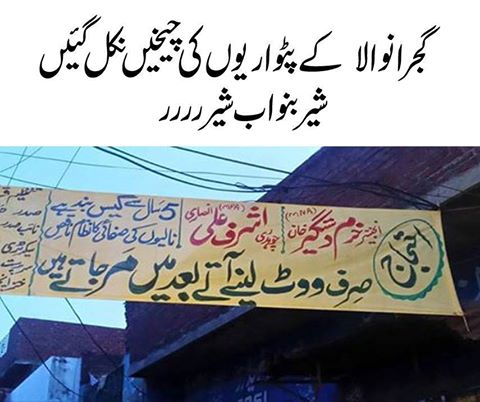 گجرانوالا کے پٹواریوں کی چیخیں نکل گئیں
شیر بنو اب شیررررر
احتجاج
انجینئر خرم دستگیر خان (M.N.A)
چوہدری اشرف علی انصاری (M.P.A)
5 سال سے گیس بند ہے
نالیوں کی صفائی کا نظام ناقص
صرف ووٹ لینے آتے بعد میں مر جاتے ہیں
صدر
نائب صدر